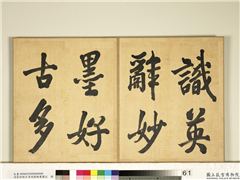 識英
辭妙
墨好
古多
61
國立故宮博物院